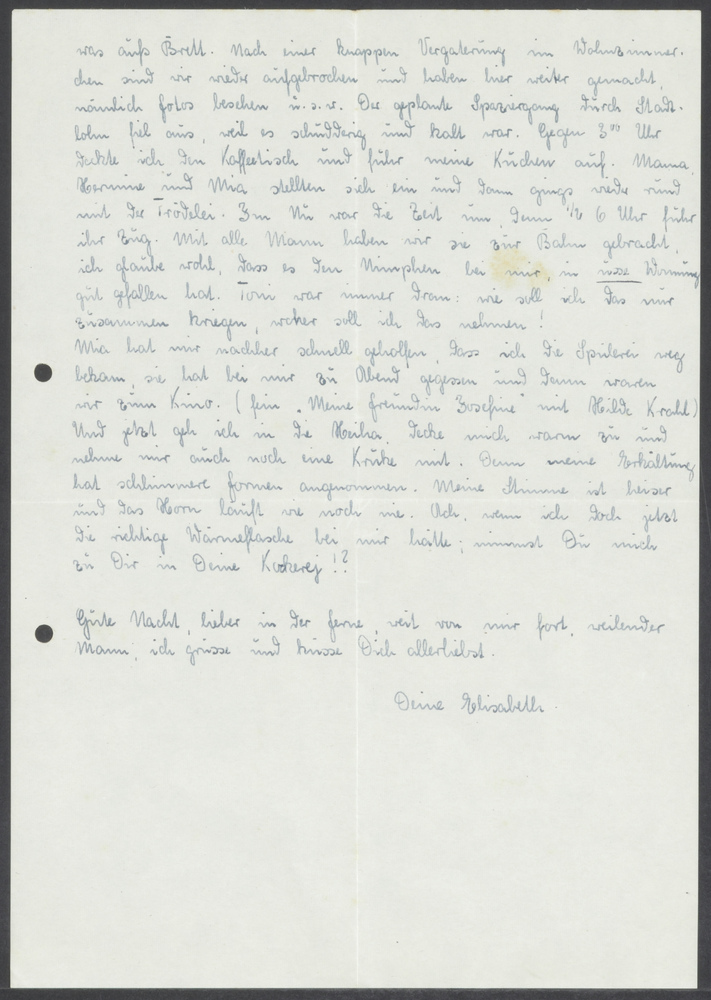 was aufs Brett. Nach einer knappen Vergaterung im Wohnzimmer-
chen sind wir wieder aufgebrochen und haben hier weiter gemacht,
nämlich fotos besehen u.s.w. Der geplante Spaziergang durch Stadt-
lohn fiel aus, weil es schudderig und kalt war. Gegen 3°° Uhr
deckte ich den Kaffeetisch und fuhr meine Kuchen auf. Mama,
Hermine und Mia stellten sich ein und dann gings wieder rund
mit der Trödelei. Im Nu war die Zeit um, denn 1/2 6 Uhr fuhr
ihr Zug. Mit alle Mann haben wir sie zur Bahn gebracht,
ich glaube wohl, dass es den Nimphen bei mir, in Wohnung
gut gefallen hat. Toni war immer dran: wie soll ich das nur
zusammen kriegen, woher soll ich das nehmen!
Mia hat mir nachher schnell geholfen, dass ich die Spülerei weg
bekam, sie hat bei mir zu Abend gegessen und dann waren
wir zum Kino. (fein „Meine freundin Josefine" mit Hilde Krahl)
Und jetzt geh ich in die Heiha, decke mich warm zu und
nehme mir auch noch eine Kruke mit. Denn meine Erkältung
hat schlimmere formen angenommen. Meine Stimme ist heiser
und das Horn läuft wie noch nie. Ach, wenn ich doch jetzt
die richtige Wärmeflasche bei mir hätte; nimmst Du mich
zu Dir in Deine !?
Gute Nacht, lieber in der ferne, weit von mir fort, weilender
Mann, ich grüsse und küsse Dich allerliebst.
Deine Elisabeth.